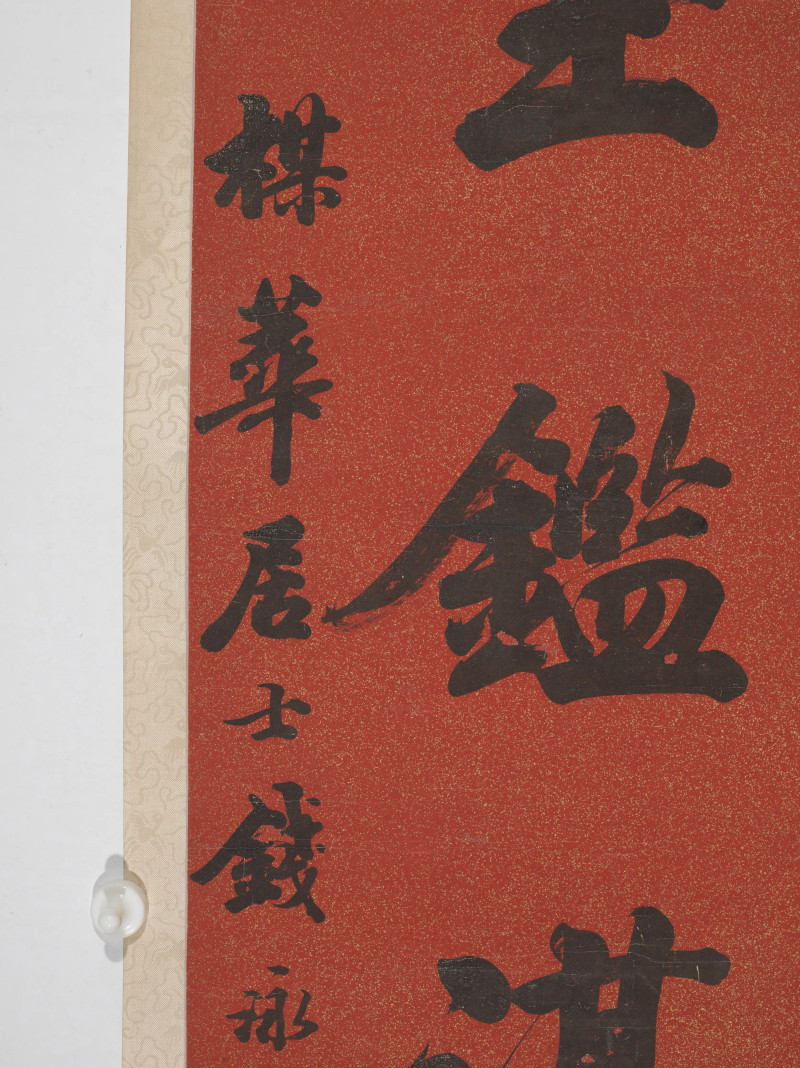 鑑
楳華居士錢泳